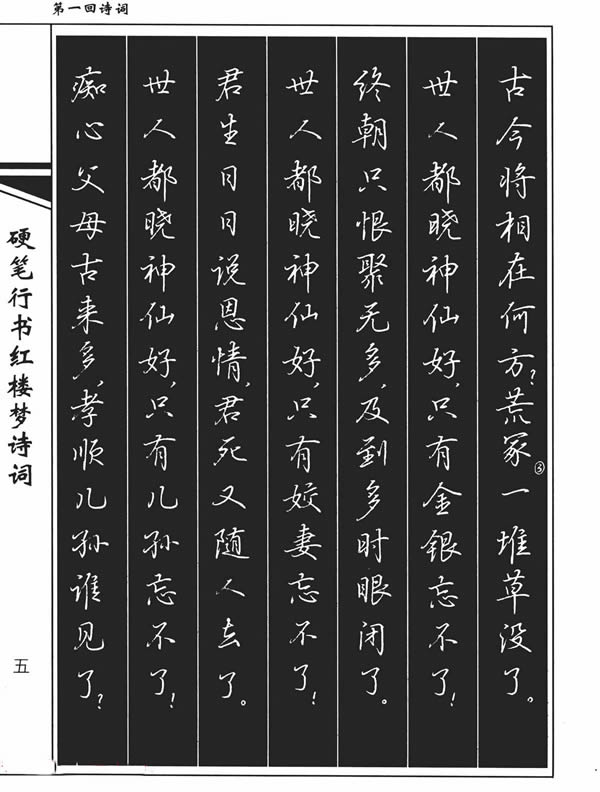 第一回诗词
古今将相在何方?荒冢③一堆草没了。
世人都晓神仙好,只有金银忘不了!
终朝只恨聚无多,及到多时眼闭了。
世人都晓神仙好,只有姣妻忘不了!
君生日日说恩情,君死又随人去了。
世人都晓神仙好,只有儿孙忘不了!
痴心父母古来多,孝顺儿孙谁见了?
硬笔行书红楼梦诗词
五